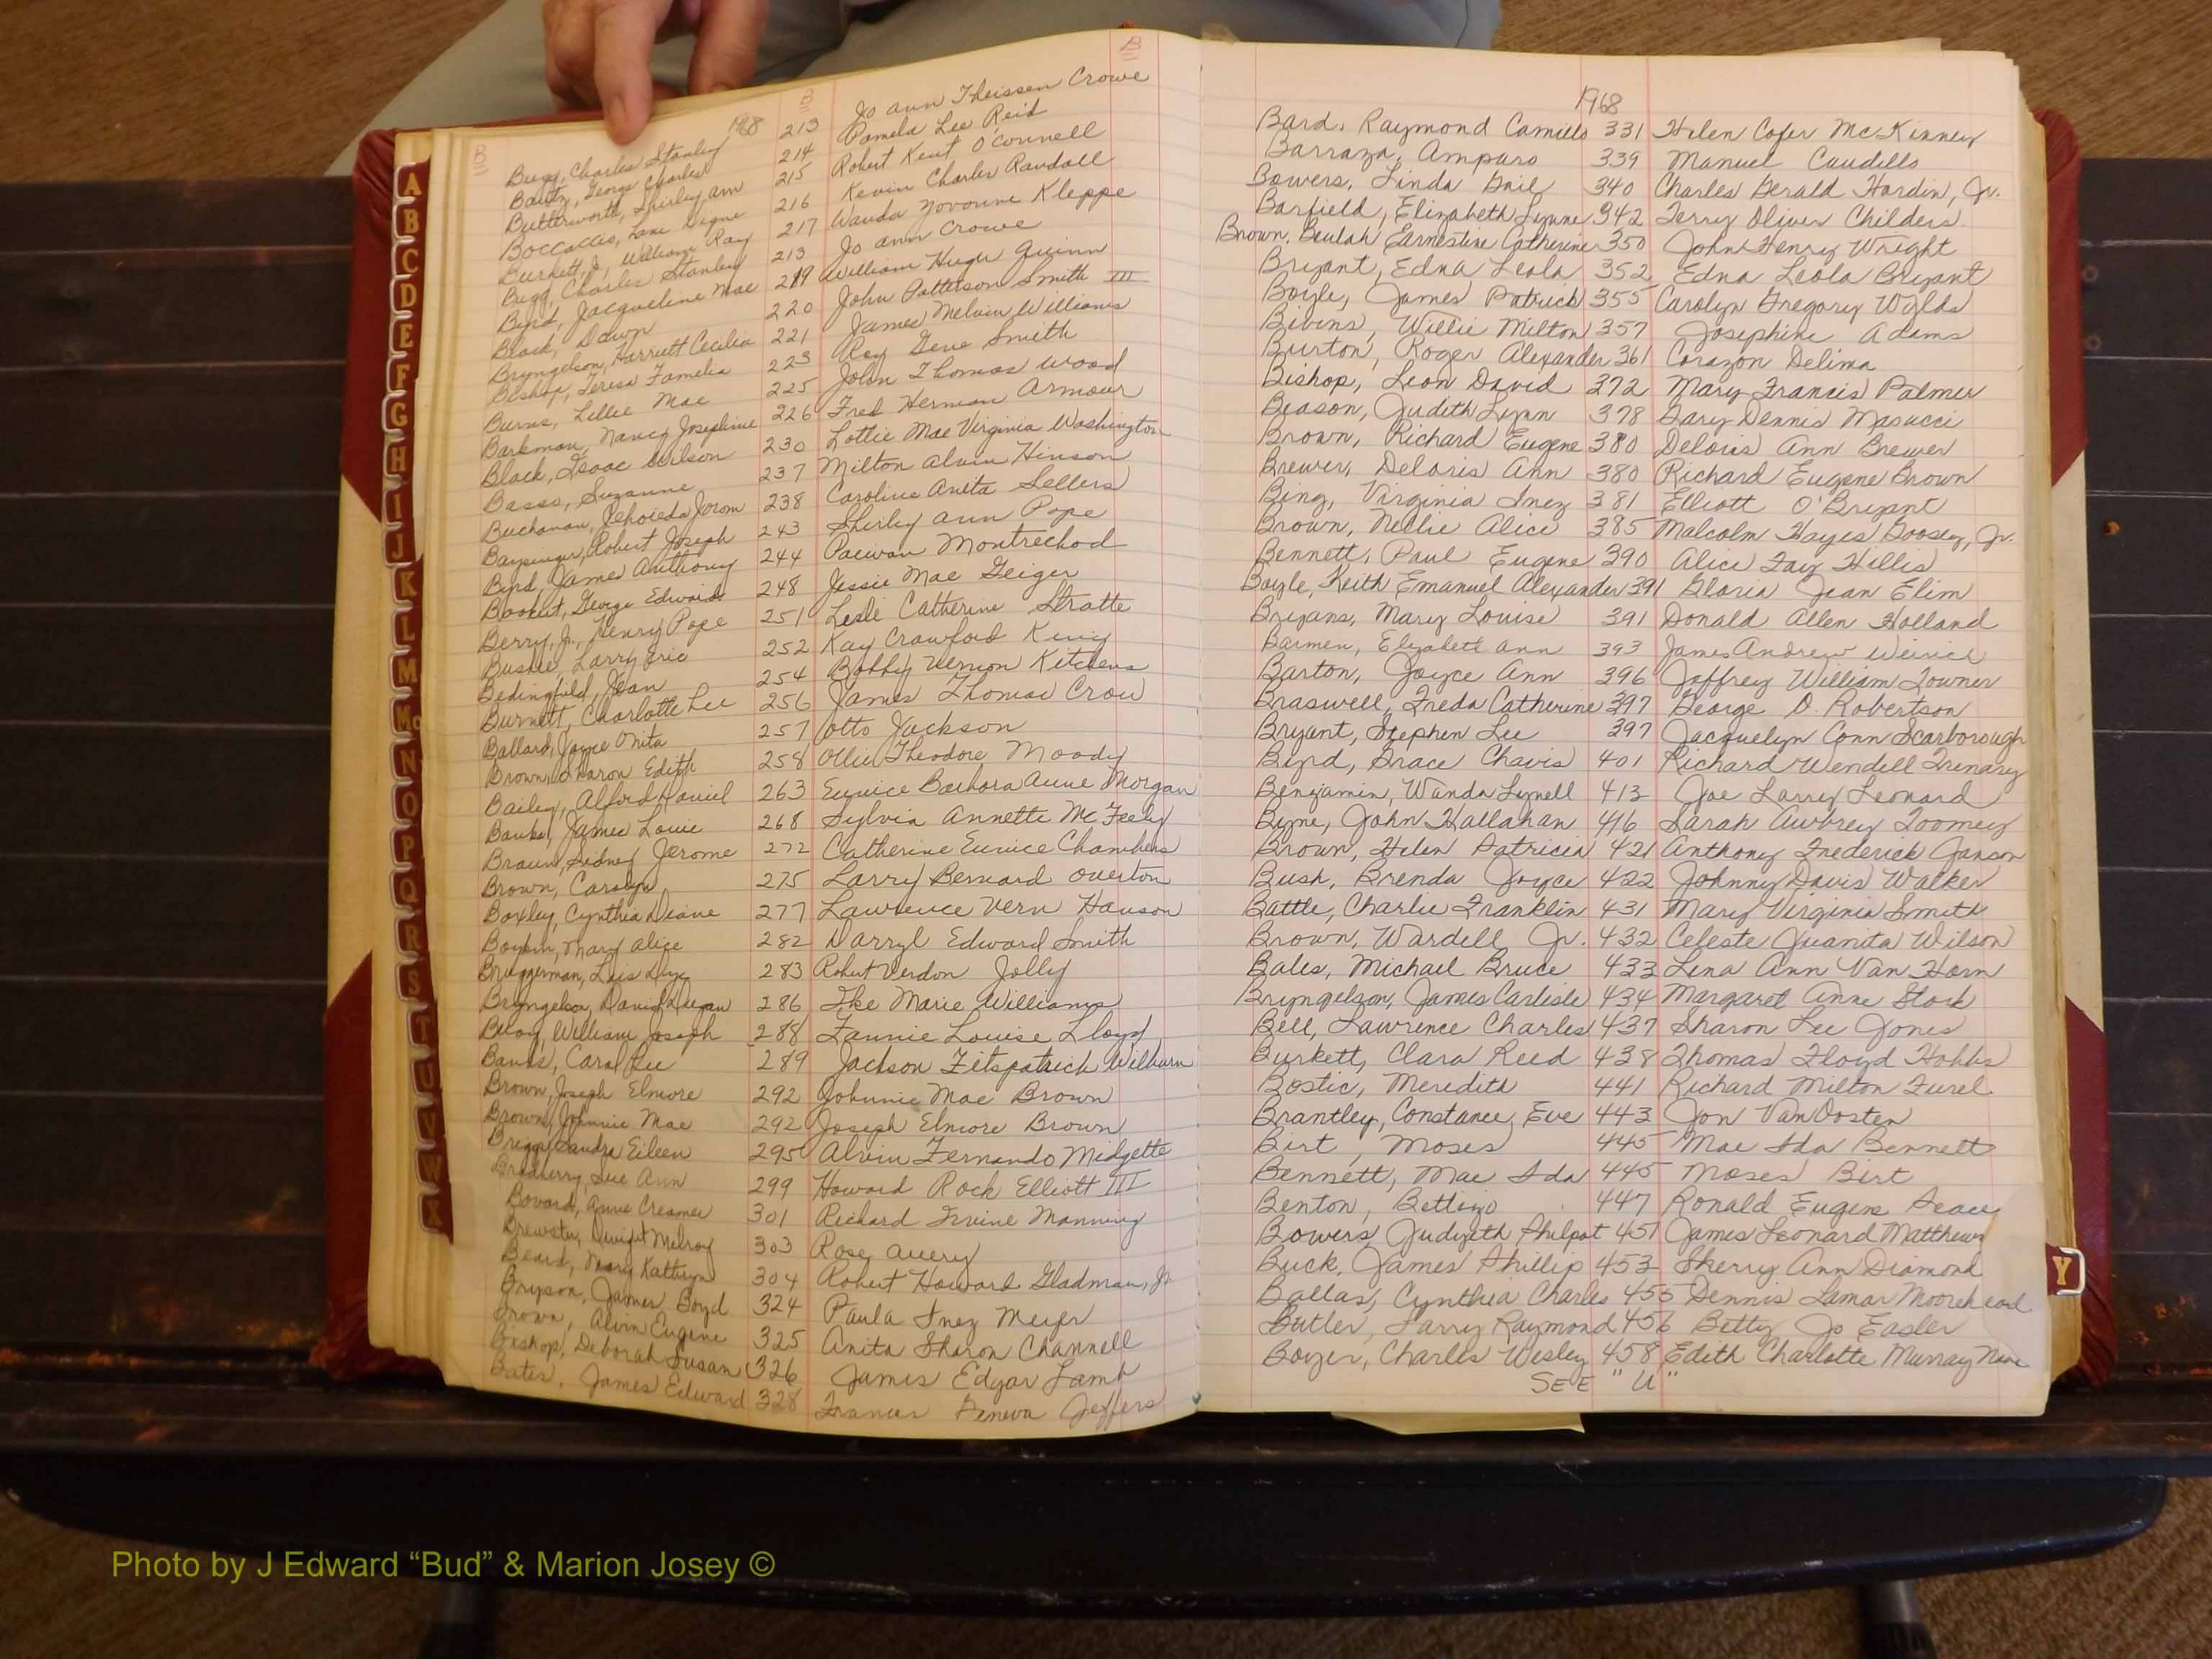 B
B
B
1968
Bugg, Charles Stanley 213 Jo Ann Theissen Crowe
Bautz, George Charles 214 Pamela Lee Reid
Butterworth, Shirley Ann 215 Robert Kent O'Connell
Boccaccio, Lane 216 Kevin Charles Randall
Burkett, Jr., William Ray 217 Wanda Yovonne Kleppe
Bugg, Charles Stanley 213 Jo Ann Crowe
Byrd, Jacqueline Mae 219 William Huger Guinn
Black, Dawn 220 John Patterson Smith III
Bryngelson, Harriett Cecilia 221 James Melvin Williams
Bishop, Teresa Famelia 223 Roy Gene Smith
Burns, Lillie Mae 225 John Thomas Wood
Barkman, Nancy Josephine 226 Fred Herman Armour
Black, Isaac Wilson 230 Lottie Mae Virginia Washington
Basso, Suzanne 237 Milton Alvin Hinson
Buchanan, Jehoieda Jerom 238 Caroline Anita Sellers
Baysinger, Robert Joseph 243 Shirley Ann Pope
Byrd, James Anthony 244 Paewan Montrechod
Bookert, George Edward 248 Jessie Mae Geiger
Berry, Jr., Henry Pope 251 Lesle Catherine Stratte
Busbee, Larry Eric 252 Kay Crawford King
Bedingfield, Jean 254 Bobby Vernon Kitchens
Burnett, Charlotte Lee 256 James Thomas Crow
Ballard, Joyce Onita 257 Otto Jackson
Brown, Sharon Edith 258 Ollie Theodore Moody
Bailey, Alford Daniel 263 Eunice Barbara Anne Morgan
Banks, James Louie 268 Sylvia Annette McFeely
Braun, Sidney Jerome 272 Catherine Eunice Chambers
Brown, Carolyn 275 Larry Bernard Overton
Boxley, Cynthia Diane 277 Lawrence Vern Hanson
Boykin, Mary Alice 282 Darryl Edward Smith
Bruggerman, Lois 283 Robert Verdon Jolly
Bryngelson, David Duean 286 Ike Marie Williams
William Joseph 288 Fannie Louise Lloyd
Bands, Carol Lee 289 Jackson Fitspatrick Wilburn
Brown, Joseph Elmore 292 Johnnie Mae Brown
Brown, Johnnie Mae 292 Joseph Elmore Brown
Briggs, Sandra Eileen 295 Alvin Fernando Midgette
Bradberry, Sue Ann 299 Howard Rock Elliott III
Bovard, Anne Creamer 301 Richard Irvine Manning
Brewster, Dwight Melroy 303 Rose Avery
Beard, Mary Kathryn 304 Robert Howard Gladman, Jr
Bryson, James Boyd 324 Paula Inez Meyer
Brown, Alvin Eugene 325 Anita Sharon Channell
Bishop, Deborah Susan 326 James Edgar Lamb
Bates, James Edward 328 Frances Geneva Jeffers
1968
Bard, Raymond Camillo 331 Helen Cofer McKinney
Barraza, Amparo 339 Manuel Caudillo
Bowers, Linda Gail 340 Charles Gerald Hardin, Jr.
Barfield, Elizabeth Lynne 342 Terry Oliver Childers
Brown, Beulah Earnestine Catherine 350 John Henry Wright
Bryant, Edna Leola 352 Edna Leola Bryant
Boyle, James Patrick 355 Carolyn Gregory Wylds
Bivins, Willie Milton 357 Josephine Adams
Burton, Roger Alexander 361 Corazon Delima
Bishop, Leon David 372 Mary Francis Palmer
Beason, Judith Lynn 378 Gary Dennis Masucci
Brown, Richard Eugene 380 Deloris Ann Brewer
Brewer, Deloris Ann 380 Richard Eugene Brown
Bing, Virginia Inez 381 Elliott O'Bryant
Brown, Nellie Alice 385 Malcolm Hayes Goosey, Jr.
Bennett, Paul Eugene 390 Alice Fay Hillis
Boyle, Keith Emanuel Alexander 391 Gloria Jean Elim
Bryans, Mary Louise 391 Donald Allen Holland
Barmen, Elizabeth Ann 393 James Andrew Weirich
Barton, Joyce Ann 396 Jeffrey William Towner
Braswell, Freda Catherine 397 George D. Robertson
Bryant, Stephen Lee 397 Jacquelyn Conn Scarborough
Byrd, Grace Chavis 401 Richard Wendell Trenary
Benjamin, Wanda Lynell 413 Joe Larry Leonard
Byne, John Hallahan 416 Sarah Awbrey Toomey
Brown, Helen Patricia 421 Anthony Frederick Janson
Bush, Brenda Joyce 422 Johnny Davis Walker
Battle, Charlie Franklin 431 Mary Virginia Smith
Brown, Wardell Jr. 432 Celeste Juanita Wilson
Bales, Michael Bruce 433 Lena Ann Van Horn
Bryngelson, James Carlisle 434 Margaret Anne Stork
Bell, Lawrence Charles 437 Sharon Lee Jones
Burkett, Clara Reed 438 Thomas Floyd Hobbs
Bostic, Meredith 441 Richard Milton Furel.
Brantley, Constance Eve 443 Jon VanOosten
Birt, Moses 445 Mae Ida Bennett
Bennett, Mae Ida 445 Moses Birt
Benton, Bettigo 447 Ronald Eugene Peace
Bowers, Judyeth Philpot 451 James Leonard Matthews
Buck, James Phillip 453 Sherry Ann Diamond
Ballas, Cynthia Charles 455 Dennis Lamar Moorehead
Butler, Larry Raymond 456 Betty Jo Easler
Boyer, Charles Wesley 458 Edith Charlotte Murray
SEE "U"
A
B
C
D
E
F
G
H
I
J
K
L
M
Mc
N
O
P
Q
R
S
T
U
V
W
X
Y
Photo by J Edward “Bud” & Marion Josey ©